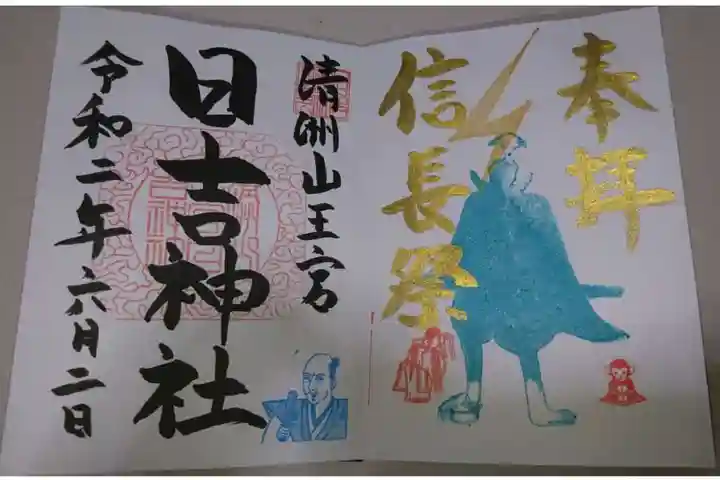 奉拝
信長祭
清洲山王宮
日吉神社
令和二年六月二日